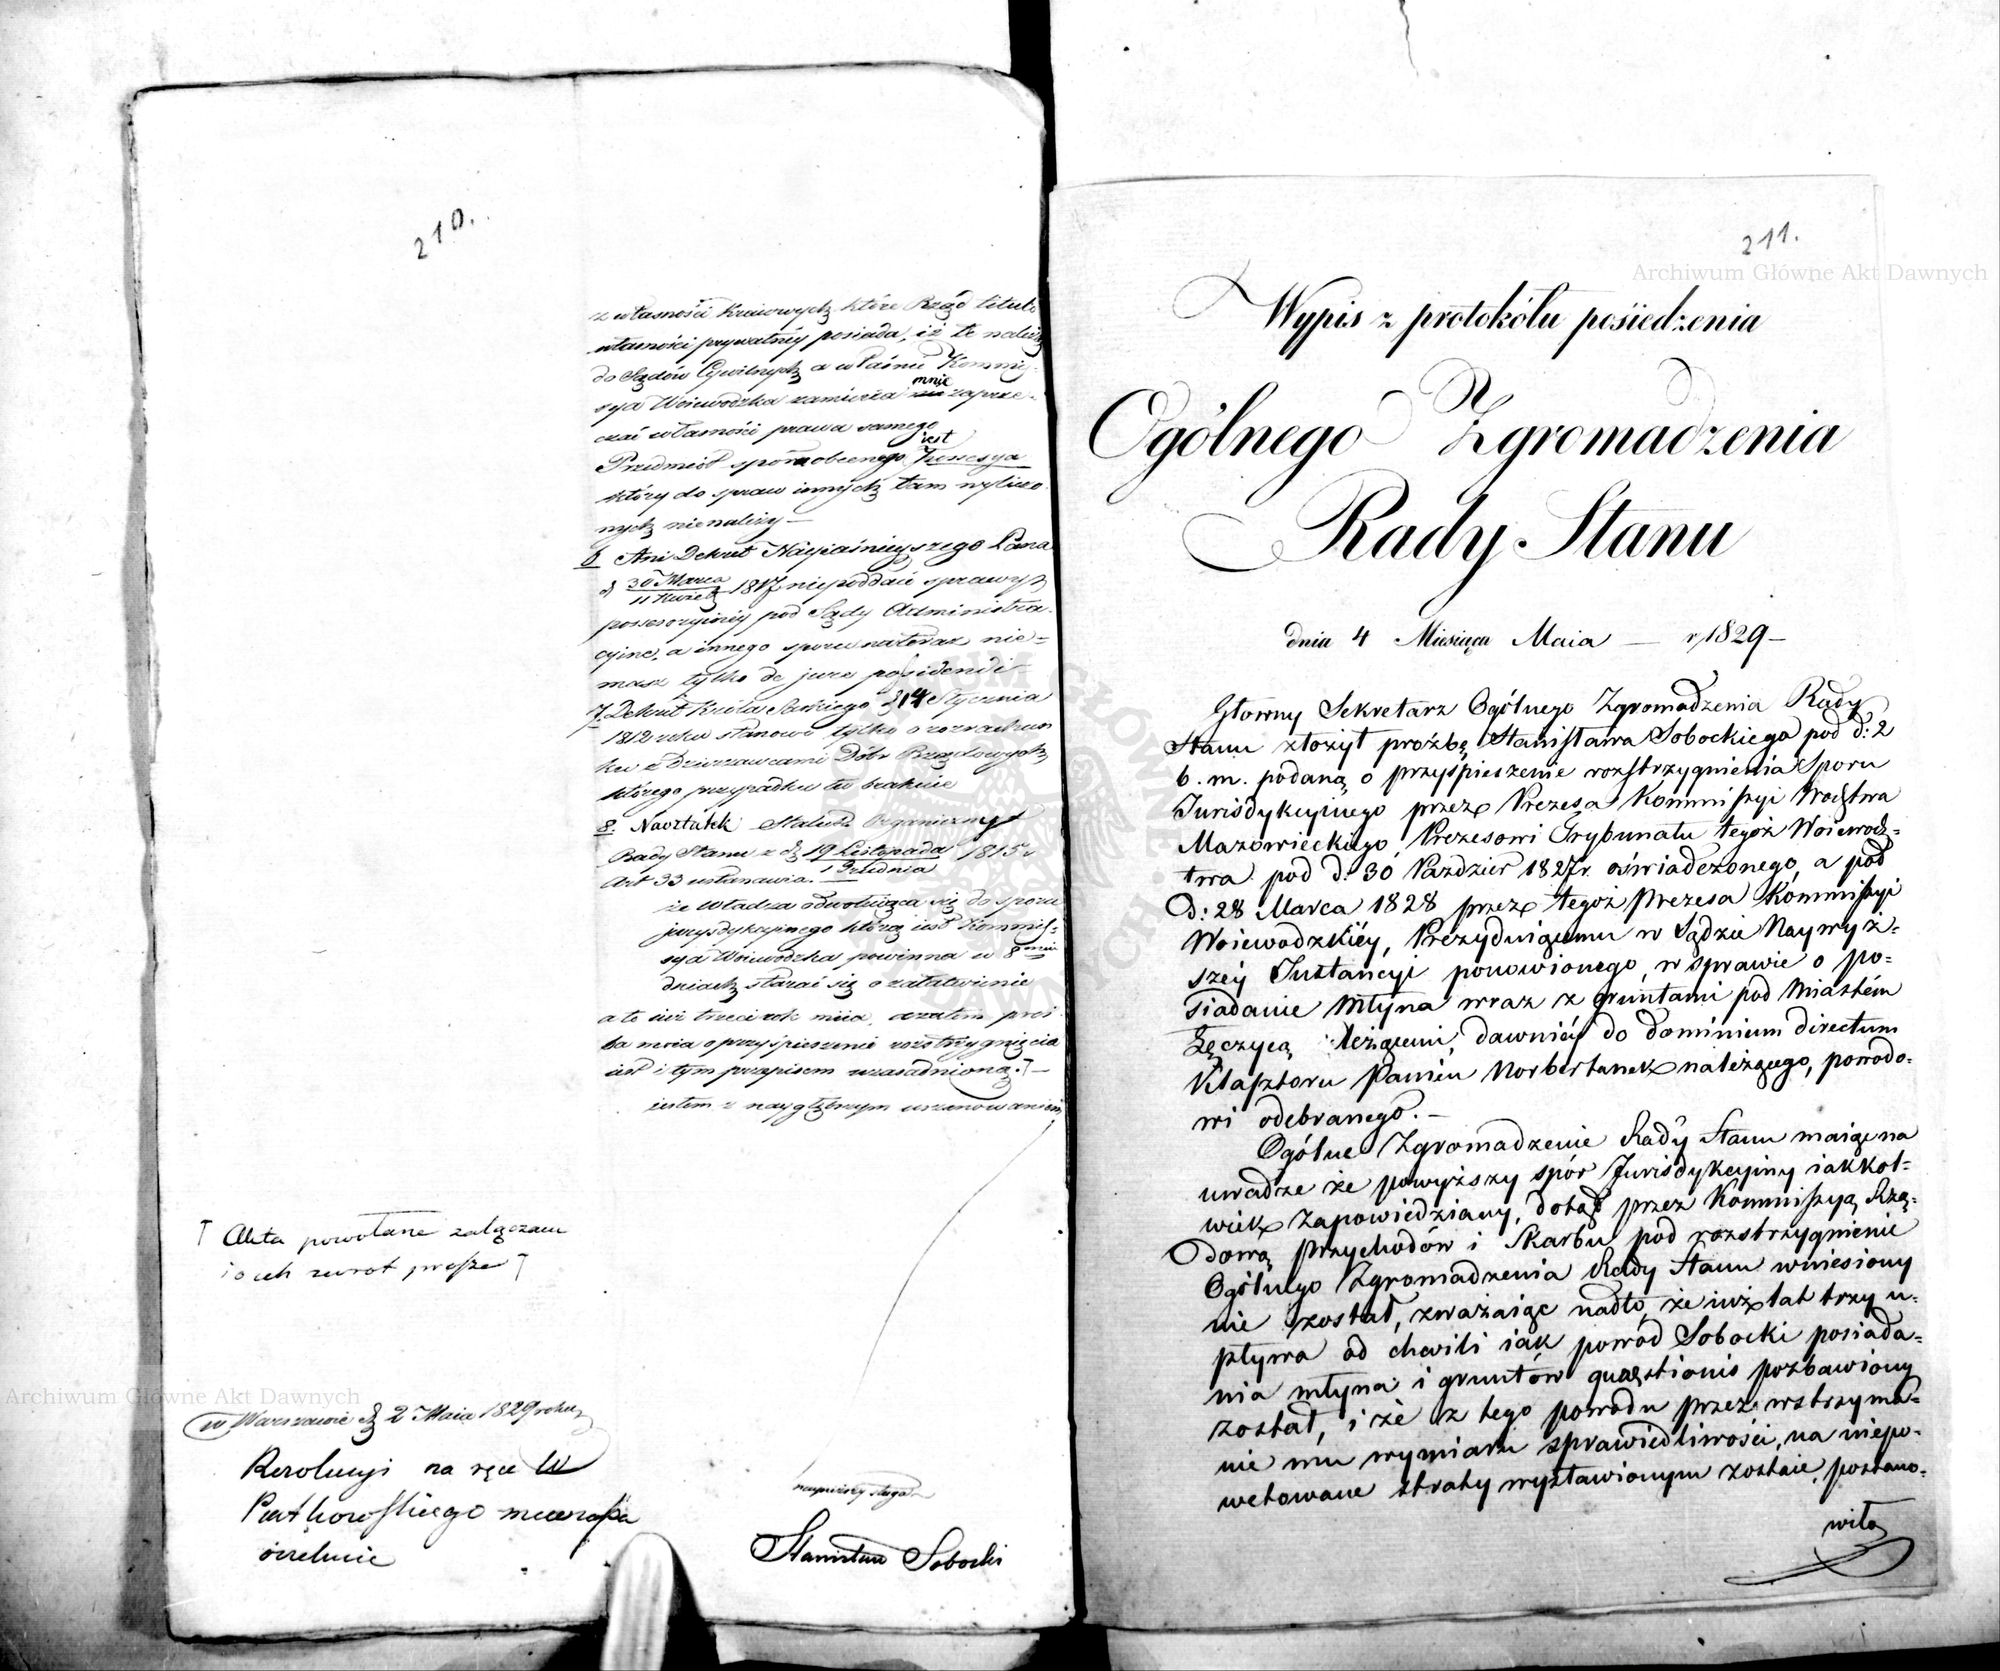 210.
z własności kraiowych które Rząd titulo
własności prywatnéy posiada, iż te należą
do Sądów Cywilnych a właśnie Kommis-
sya Woiewodzka zamierza mnie zaprze-
czać własności prawa samego
Przedmiot sporu obecnego iest
który do spraw innych tam wyliczo
nych nienależy —
6 Ani Dekret Nayiaśnieyszego Pana
d 30 Marca / 11 Kwiet 1817 niepoddaie sprawy
possessoryinéy pod Sądy Administra-
cyine, a innego sporu na teraz nie-
masz tylko de jure possidendi
7. Dekret Króla Saskiego d 14 Stycznia
1812 roku stanowi tylko o rozrachun
ku z Dzierzawcami Dóbr Rządowych
którego przypadku tu brakuie
8. Nareszcie Statut Organiczny
Rady Stanu z d 19 Listopada / 1 Grudnia 1815 r
Art 33 ustanawia.
że Władza odwołuiąca się do sporu
jurysdykcyinego którą iest Kommis-
sya Woiewodzka powinna w 8miu
dniach starać się o załatwienie
a to iuż trzeci rok miia, a zatem proś
ba moia o przyśpieszenie rozstrzygnięcia
iest i tym przepisem uzasadnioną. —
iestem z naygłębszym uszanowaniem
Akta powołane załączam
i o ich zwrot proszę
w Warszawie d 2 Maia 1829 roku
Rezolucyi na ręce W
oczekuie
naynizszy sługa
Stanisław Sobocki
211.
Wypis z protokółu posiedzenia
Ogólnego Zgromadzenia
Rady Stanu
dnia 4 Miesiąca Maia — r 1829 —
Głowny Sekretarz Ogólnego Zgromadzenia Rady
Stanu złożył proźbę Stanisława Sobockiego pod d: 2
b. m. podaną o przyśpieszenie rozstrzygnienia Sporu
Jurisdykcyinego przez Prezesa Kommissyi Wodztwa
Mazowieckiego, Prezesowi Trybunału tegoż Woiewodz-
twa pod d: 30 Pazdzier 1827 r. oświadczonego, a pod
d: 28 Marca 1828 przez tegoż Prezesa Kommissyi
Woiewodzkiéy, Prezyduiącemu w Sądzie Naywyż-
széy Instancyi ponowionego, w sprawie o po-
siadanie Młyna wraz z gruntami pod Miastem
Łęczycą leżącemi, dawniéy do dominium directum
Klasztoru Panien Norbertanek należącego, powodo-
wi odebranego. —
Ogólne Zgromadzenie Rady Stanu maiąc na
uwadze że powyższy spór Jurisdykcyiny iakkol-
wiek zapowiedziany, dotąd przez Kommissyą Rzą-
dową Przychodów i Skarbu pod rozstrzygnienie
Ogólnego Zgromadzenia Rady Stanu wniesiony
nie został, zważaiąc nadto, że iuż lat trzy u-
pływa od chwili iak powód Sobocki posiada-
nia młyna i gruntów quaestionis pozbawiony
został, i że z tego powodu przez wstrzyma-
nie mu wymiaru sprawiedliwości, na niepo-
wetowane straty wystawionym zostaie, postano-
wiło
Archiwum Główne Akt Dawnych
Archiwum Główne Akt Dawnych
ARCHIWUM GŁÓWNE AKT DAWNYCH